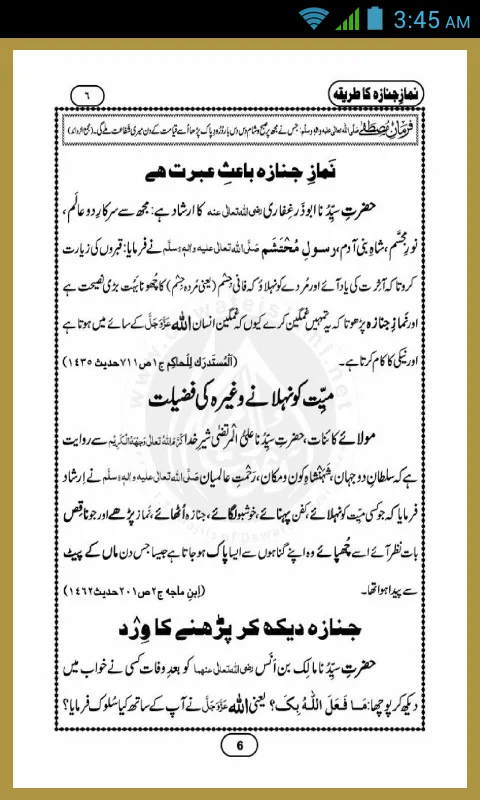 3:45 AM
٦
نمازِ جنازہ کا طریقہ
فرمانِ مصطفےٰ صلَّی اللہ تعالٰی علیہ والہٖ وسلَّم: جس نے مجھ پر صبح و شام دس دس بار دُرُودِ پاک پڑھا اُسے قیامت کے دن میری شفاعت ملے گی۔ (مجمع الزوائد)
نَمازِ جنازہ باعثِ عبرت ھے
حضرتِ سیِّدُنا ابوذَر غِفاری رضی اللہ تعالٰی عنہ کا ارشاد ہے: مجھ سے سرکارِ دو عالَم،
نورِ مجسَّم، شاہِ بنی آدم، رسولِ مُحْتَشَم صلَّی اللہ تعالٰی علیہ والہٖ وسلَّم نے فرمایا: قبروں کی زیارت
کرو تا کہ آخِرت کی یاد آئے اور مُردے کو نہلاؤ کہ فانی جِسْم (یعنی مُردہ جِسْم) کا چُھونا بَہُت بڑی نصیحت ہے
اور نَمازِ جنازہ پڑھو تا کہ یہ تمہیں غمگین کرے کیوں کہ غمگین انسان اللہ عَزَّوَجَلَّ کے سائے میں ہوتا ہے
اور نیکی کا کام کرتا ہے۔ (اَلْمُستَدرَك لِلْحاكِم ج١ ص٧١١ حديث ١٤٣٥)
میِّت کو نہلانے وغیرہ کی فضیلت
مولائے کائنات، حضرتِ سیِّدُنا علیُّ الْمُرتَضٰی شیرِ خدا كَرَّمَ اللهُ تعالٰى وَجْهَهُ الْكَرِيْم سے روایت
ہے کہ سلطانِ دوجہان، شَہَنْشاہِ کون و مکان، رَحْمتِ عالمیان صلَّی اللہ تعالٰی علیہ والہٖ وسلَّم نے ارشاد
فرمایا کہ جو کسی میِّت کو نہلائے، کفن پہنائے، خوشبو لگائے، جنازہ اُٹھائے، نَماز پڑھے اور جو ناقِص
بات نظر آئے اسے چُھپائے وہ اپنے گناہوں سے ایسا پاک ہو جاتا ہے جیسا جس دن ماں کے پیٹ
سے پیدا ہوا تھا۔ (اِبنِ ماجه ج٢ ص٢٠١ حديث ١٤٦٢)
جنازہ دیکھ کر پڑھنے کا وِرْد
حضرتِ سیِّدُنا مالِک بن اَنَس رضی اللہ تعالٰی عنہما کو بعدِ وفات کسی نے خواب میں
دیکھ کر پوچھا: مَا فَعَلَ اللّٰهُ بِكَ؟ یعنی اللہ عَزَّوَجَلَّ نے آپ کے ساتھ کیا سُلوک فرمایا؟
6